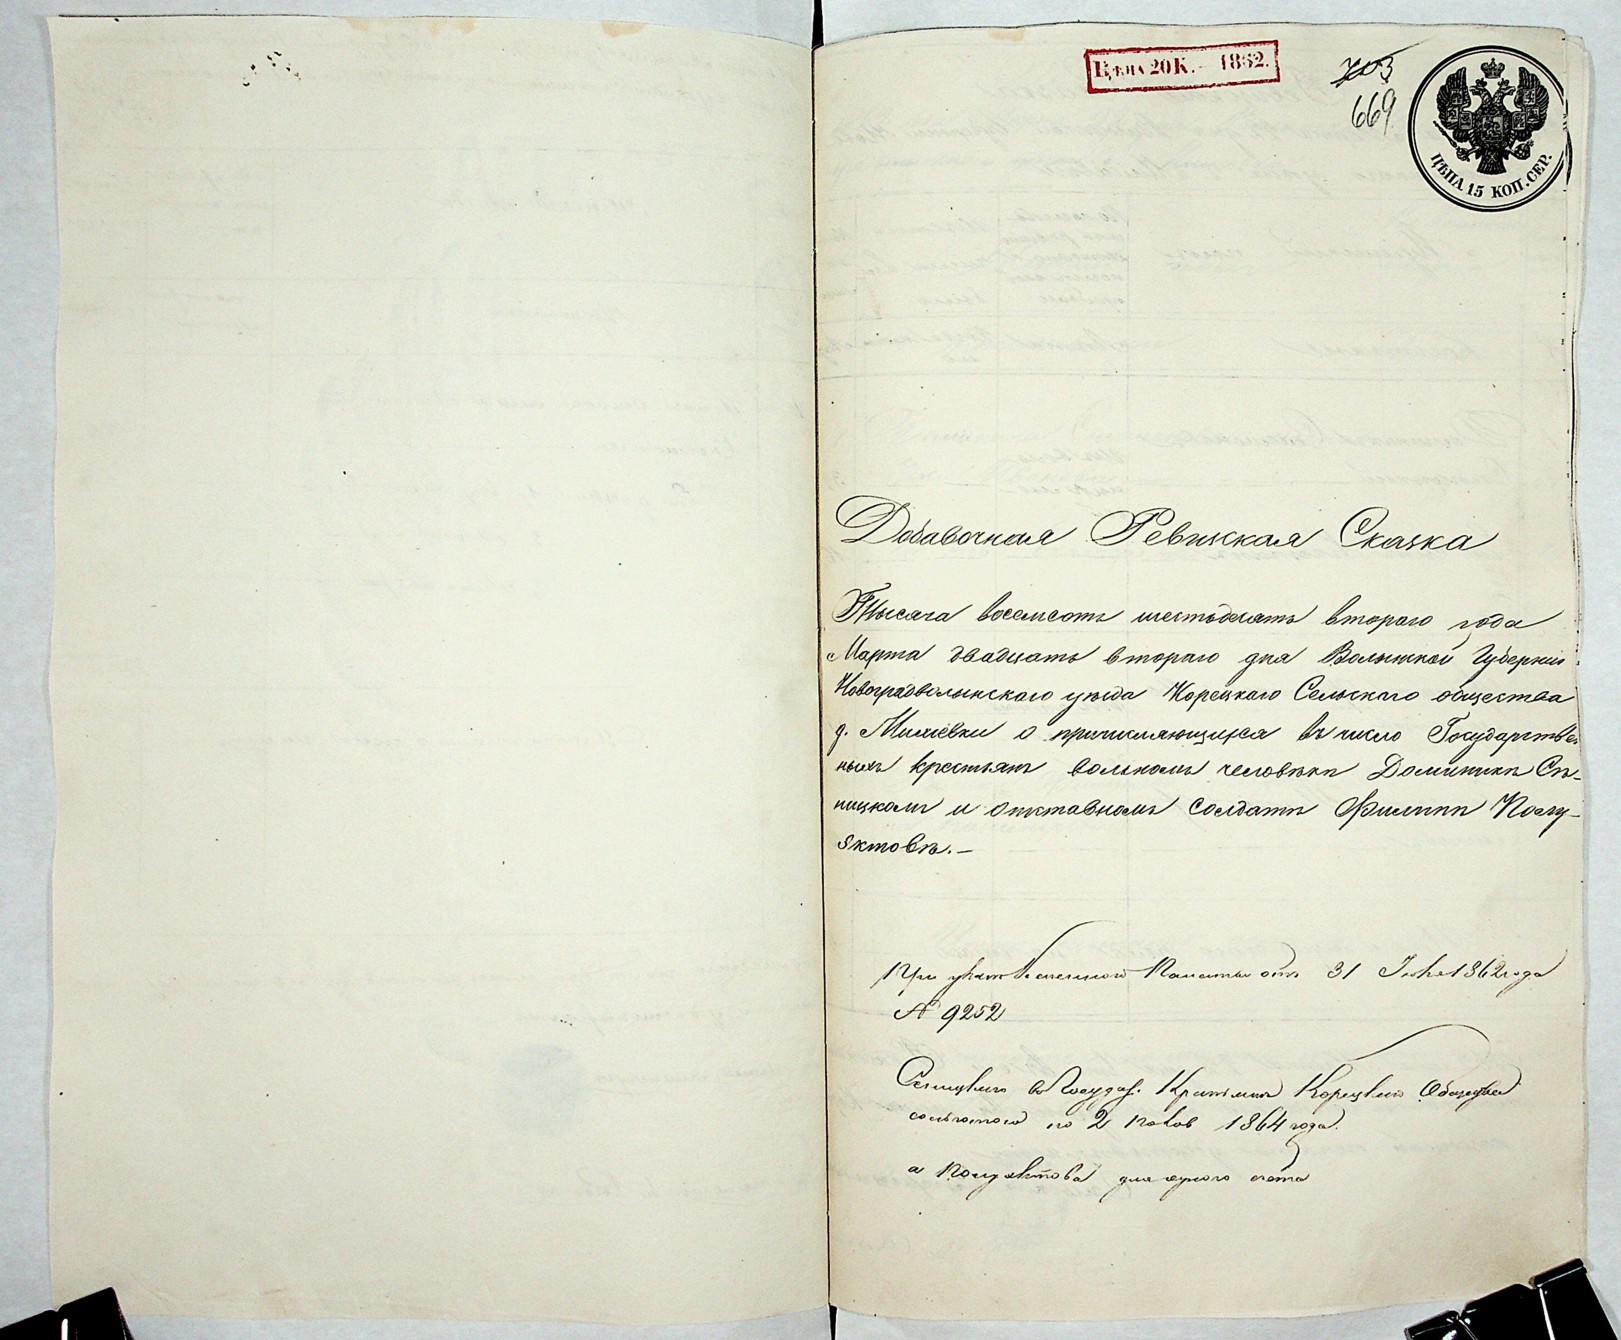 Цѣна 20 К. 1862.
703
669
ЦѢНА 15 КОП. СЕР.
Добавочная Ревизская Сказка
Тысяча восемсотъ шестьдесятъ втораго года
Марта двадцать втораго дня Волынской Губерніи
Новоградволынскаго уѣзда Корецкаго Сельскаго общества
д. о причисляющихся въ число Государствен
ныхъ крестьянъ вольномъ человѣкѣ Доминикѣ Сѣ-
ницкомъ и отставномъ солдатѣ Филиппѣ Полу-
эктовѣ.—
При указѣ Казенной Палаты отъ 31 1862 года
№ 9252
въ Государ. Крестьяне Корецкаго Общества
со 2 полов 1864 года.
а Полуэктова для одного счета